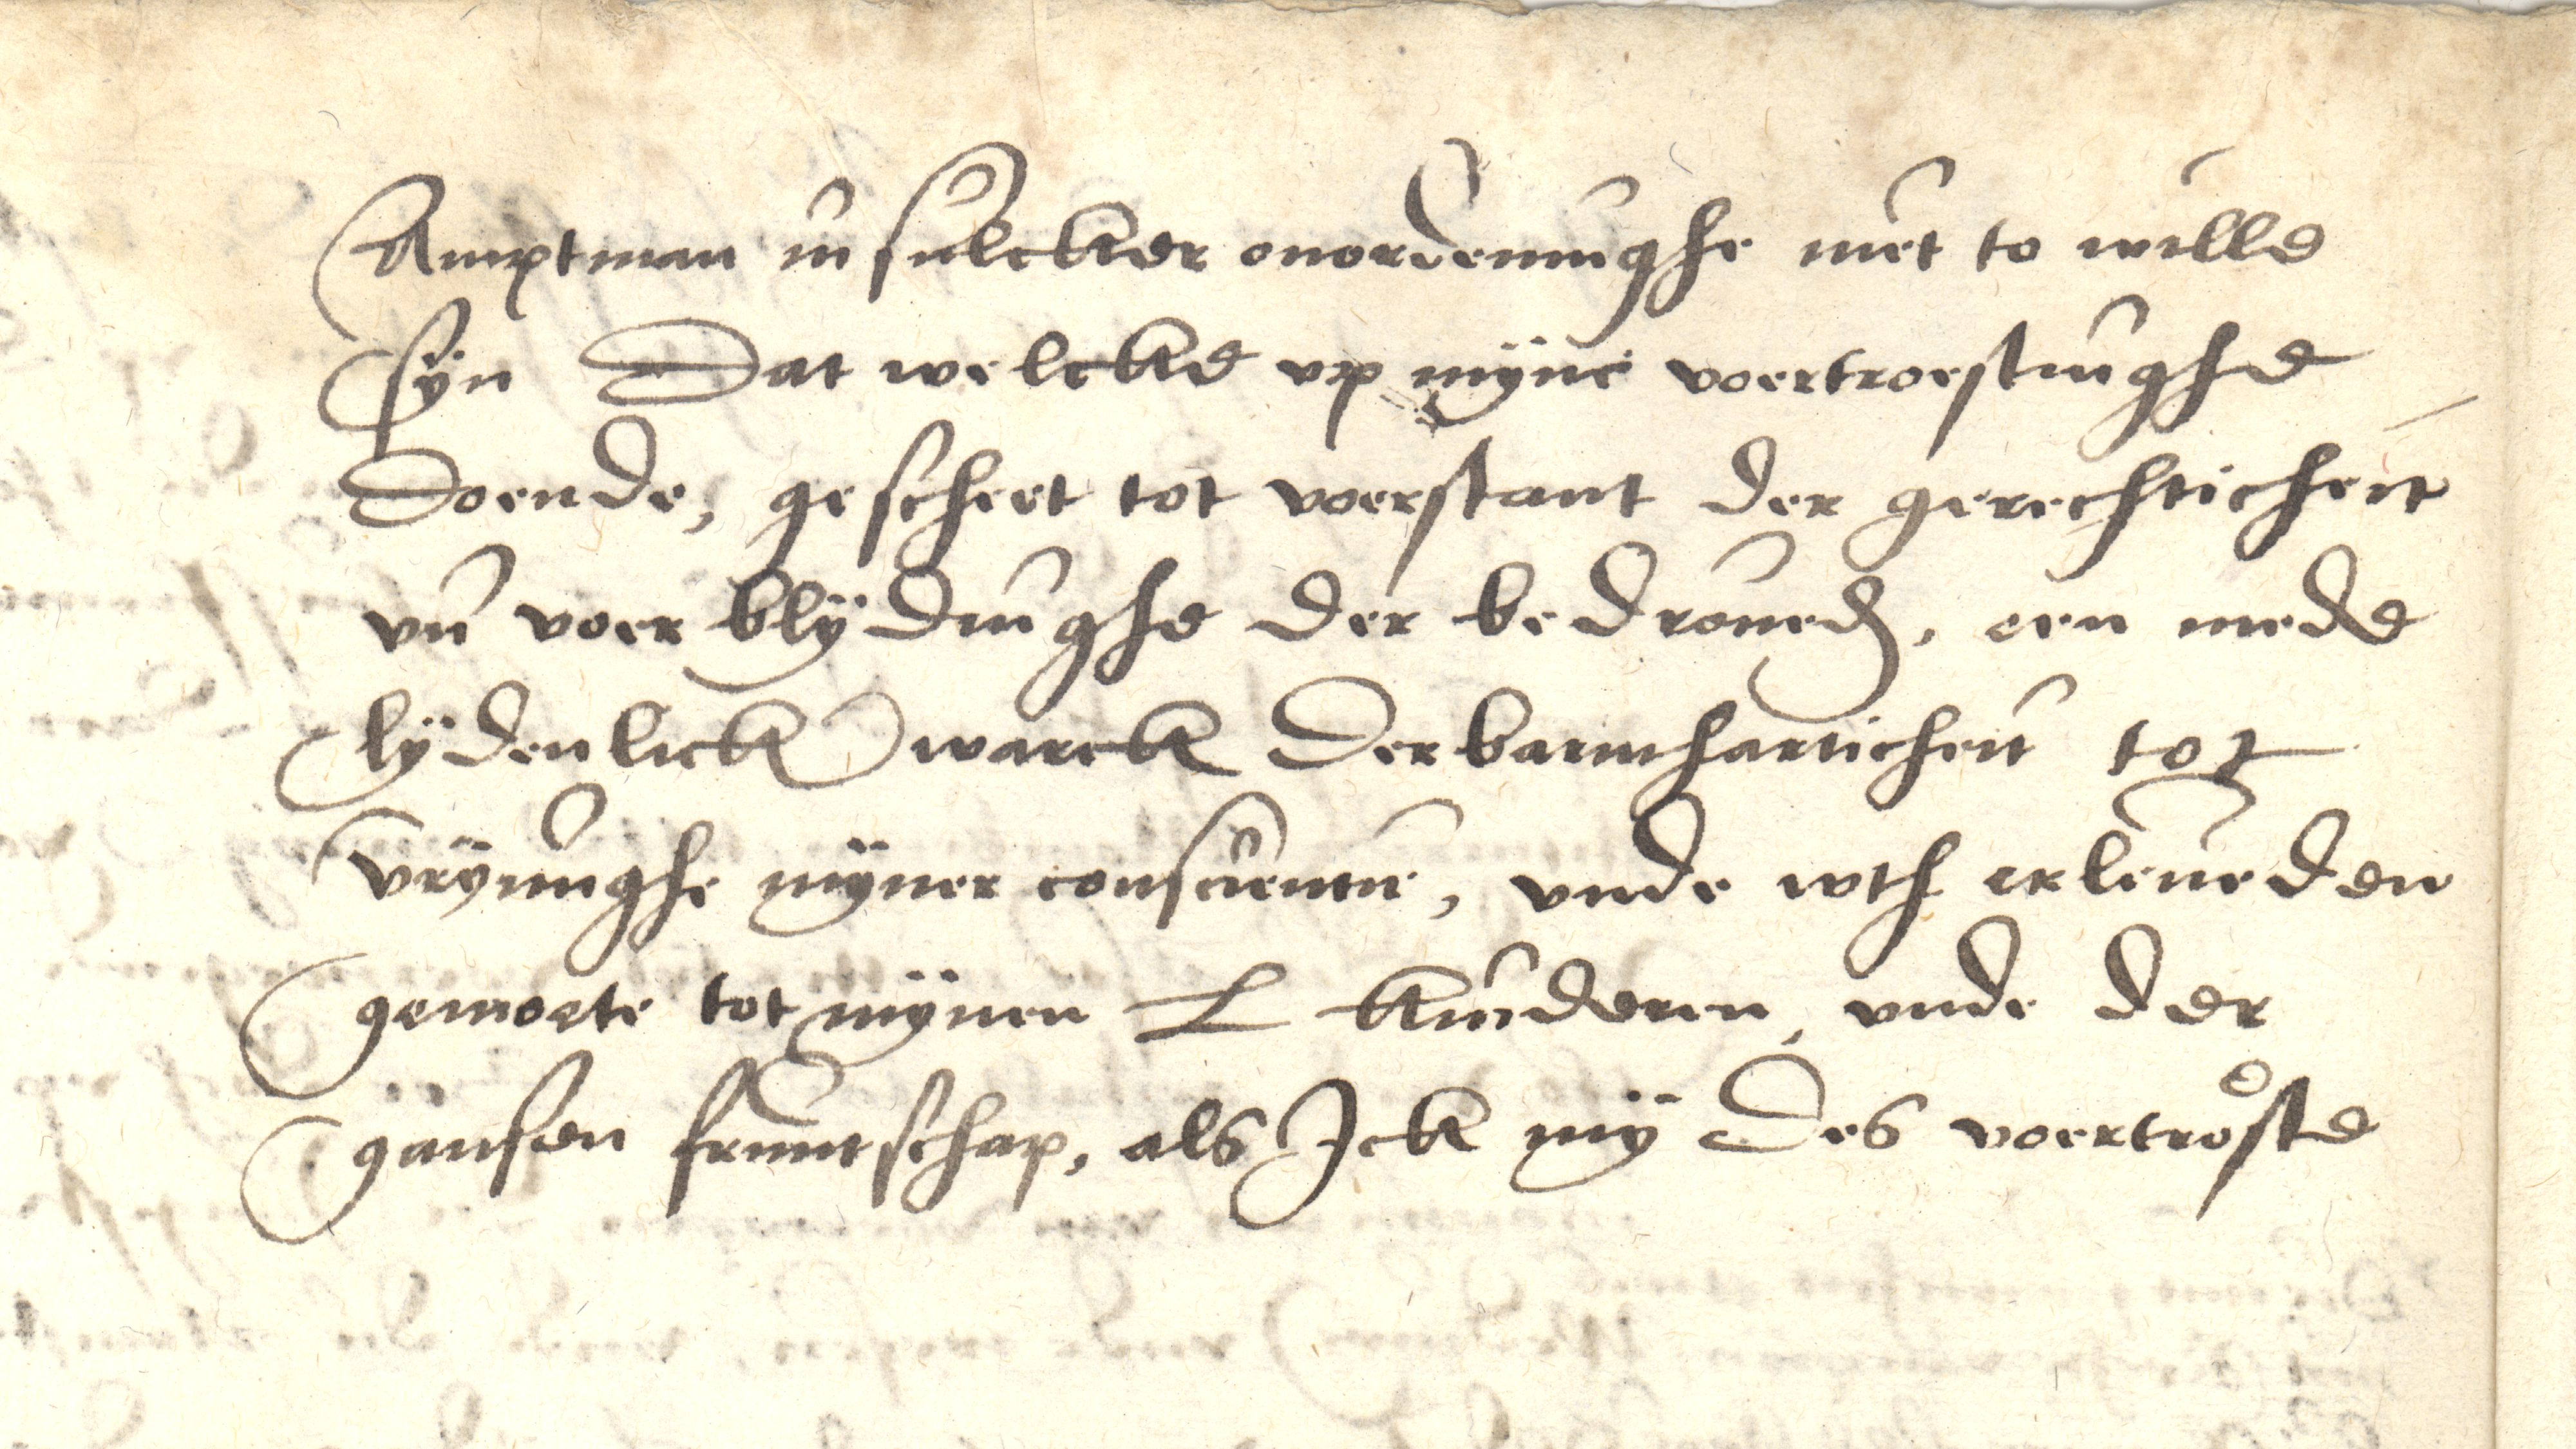 Amptman in sulcker onordeninghe niet to wille
syn Dat welcke vp myne voertroestinghe
Doende, gescheet tot voerstant der gerechticheit
vn̄ voer blÿdinghe der bedroueden, een mede
lÿdenlick warck der barmharticheit tot
vrÿinghe mÿner conscientie, vnde wth erleueden
gemoete tot mÿnen L kinderen, vnde der
gansen fruntschap, als Jck mÿ des voertroͤste